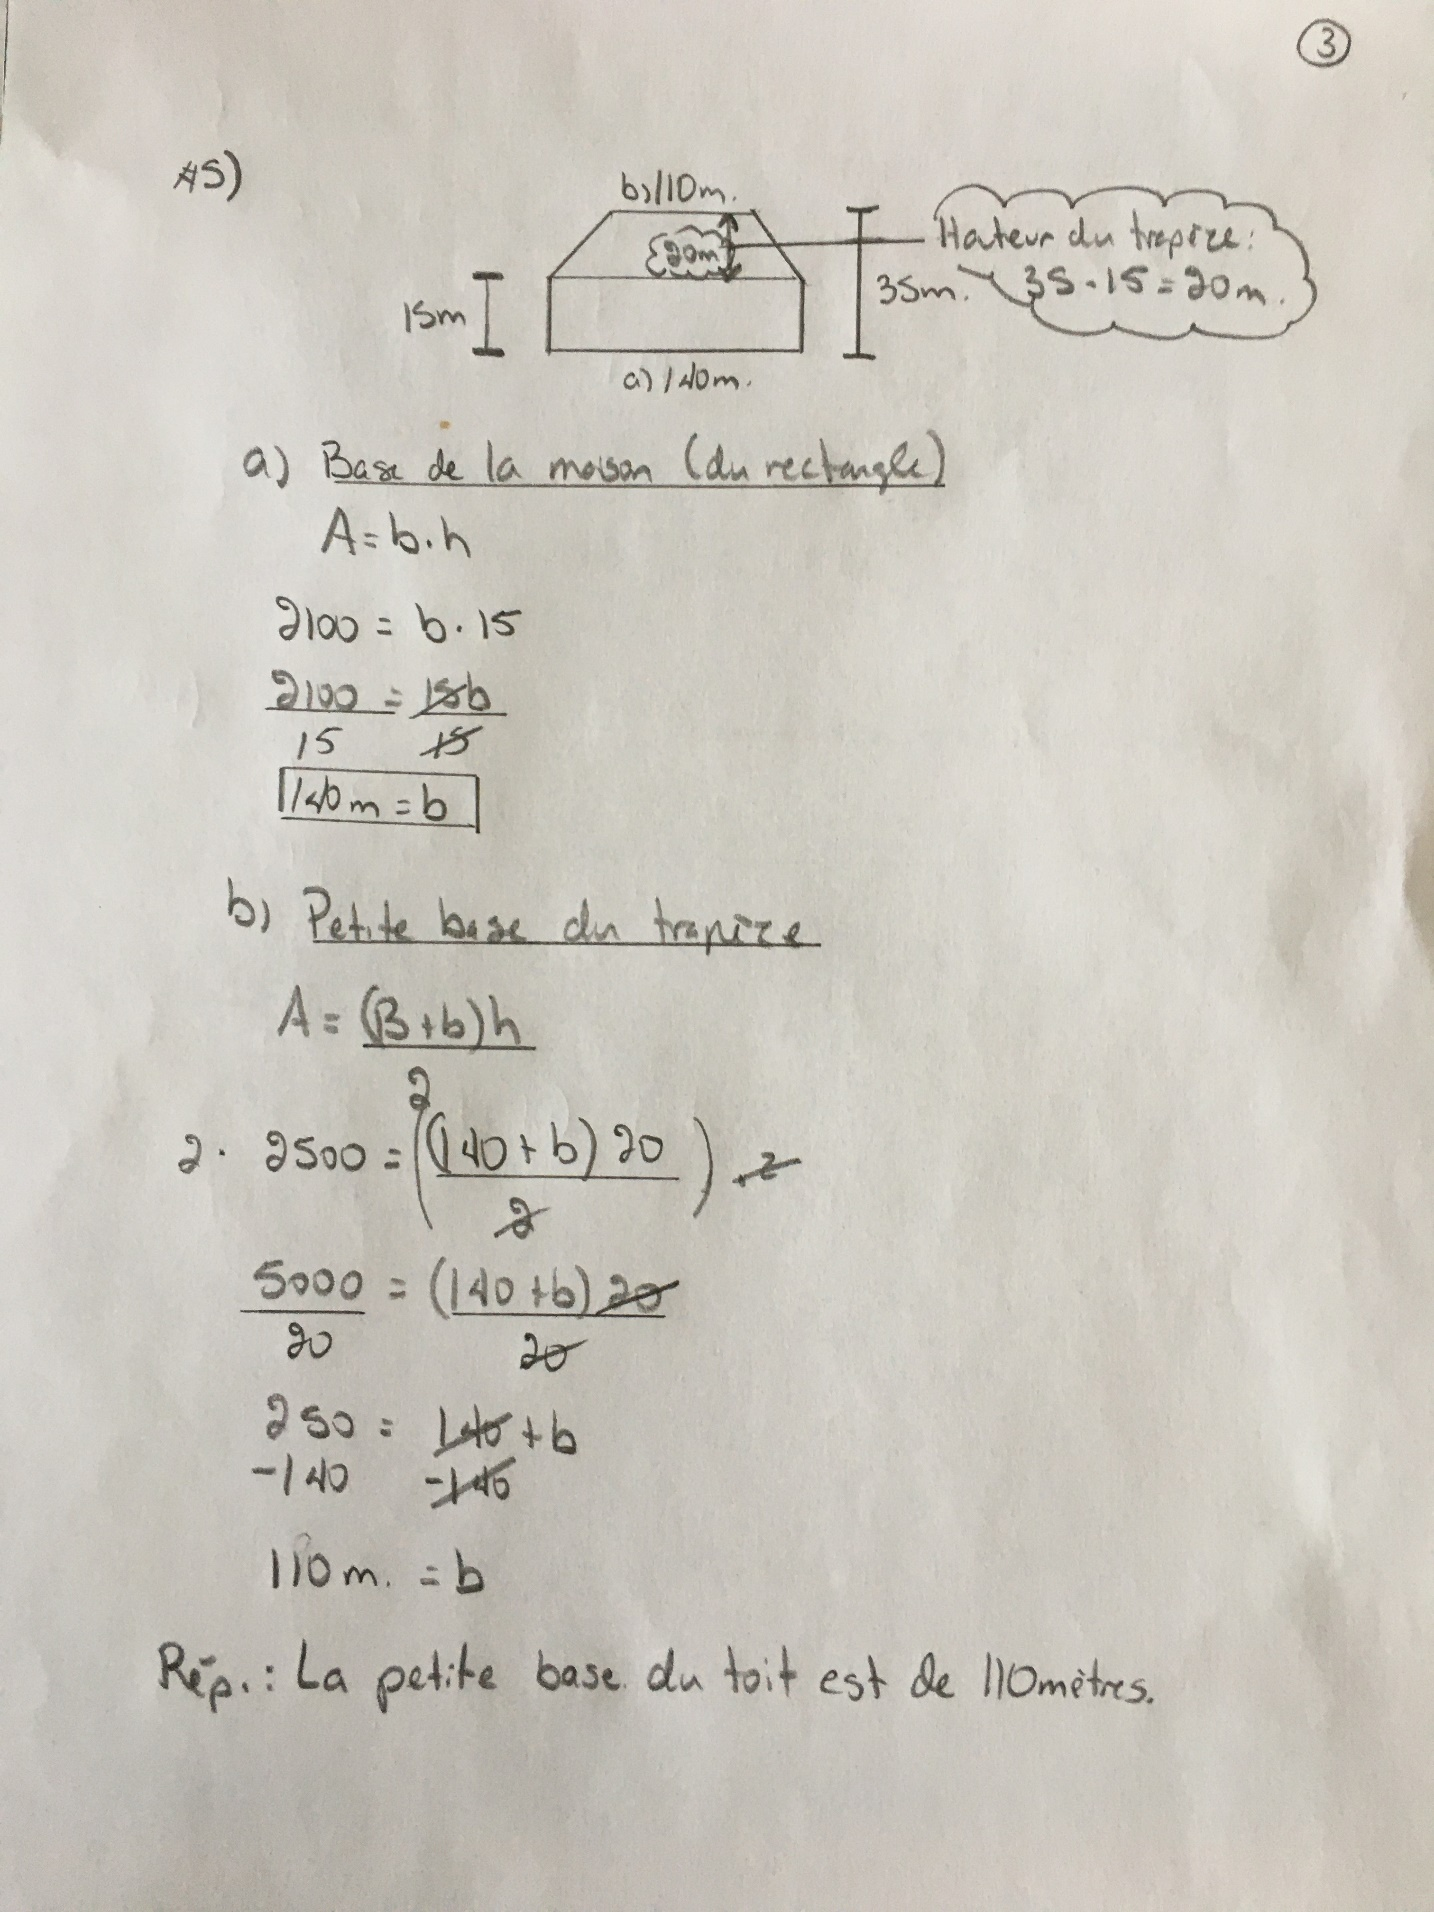 3
#5)
b) 110m.
20m
Hauteur du trapèze:
35-15=20m.
35m.
15m
a) 140m.
a) Base de la maison (du rectangle)
A=b·h
2100 = b·15
2100 = 15b
15 15
140m = b
b) Petite base du trapèze
A = (B+b)h
2
2· 2500 = ((140+b)20) ·2
2
5000 = (140+b)20
20 20
250 = 140+b
-140 -140
110m. = b
Rép.: La petite base du toit est de 110mètres.